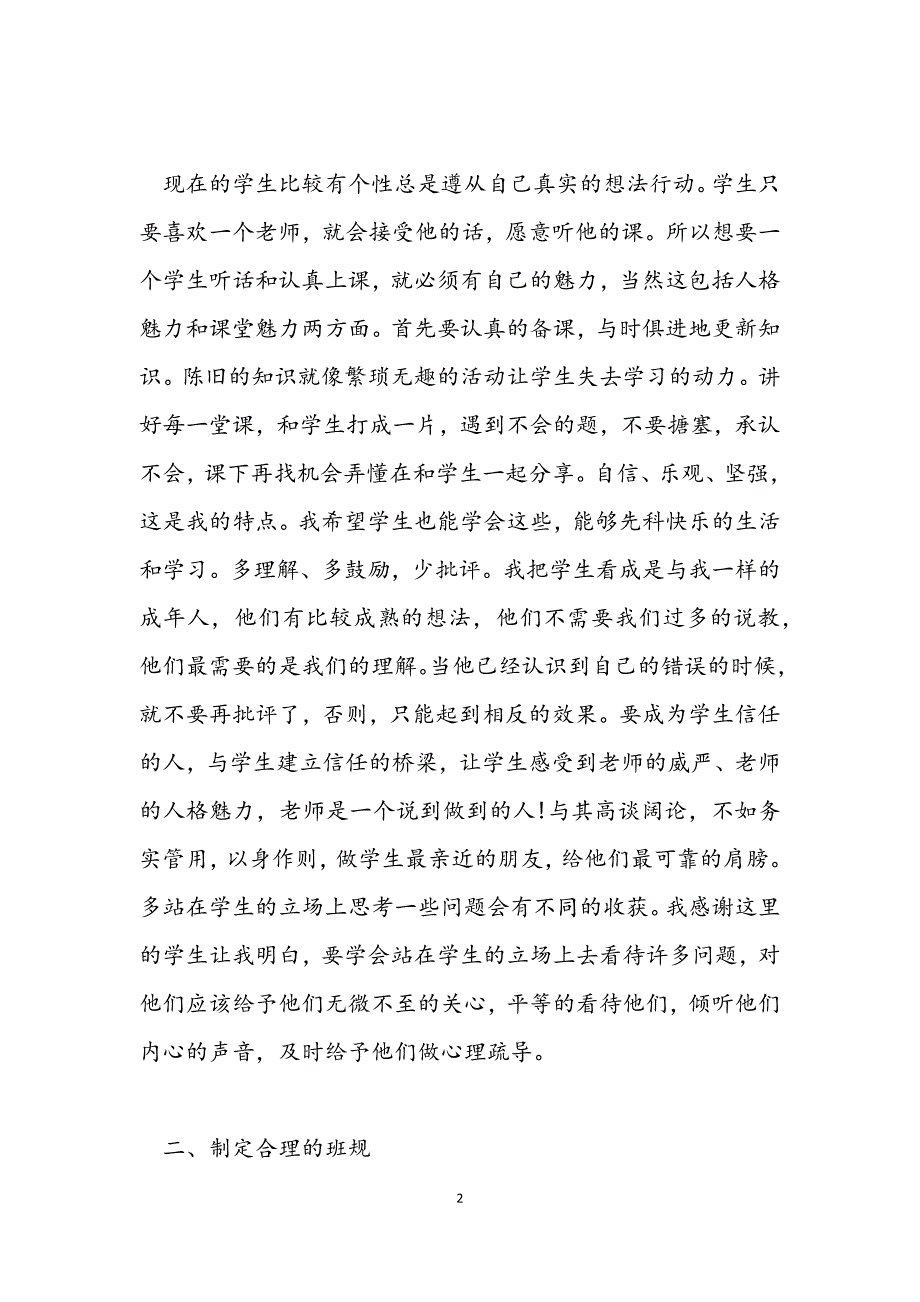 现在的学生比较有个性总是遵从自己真实的想法行动。学生只
要喜欢一个老师，就会接受他的话，愿意听他的课。所以想要一
个学生听话和认真上课，就必须有自己的魅力，当然这包括人格
魅力和课堂魅力两方面。首先要认真的备课，与时俱进地更新知
识。陈旧的知识就像繁琐无趣的活动让学生失去学习的动力。讲
好每一堂课，和学生打成一片，遇到不会的题，不要搪塞，承认
不会，课下再找机会弄懂在和学生一起分享。自信、乐观、坚强，
这是我的特点。我希望学生也能学会这些，能够先科快乐的生活
和学习。多理解、多鼓励，少批评。我把学生看成是与我一样的
成年人，他们有比较成熟的想法，他们不需要我们过多的说教，
他们最需要的是我们的理解。当他已经认识到自己的错误的时候，
就不要再批评了，否则，只能起到相反的效果。要成为学生信任
的人，与学生建立信任的桥梁，让学生感受到老师的威严、老师
的人格魅力，老师是一个说到做到的人!与其高谈阔论，不如务
实管用，以身作则，做学生最亲近的朋友，给他们最可靠的肩膀。
多站在学生的立场上思考一些问题会有不同的收获。我感谢这里
的学生让我明白，要学会站在学生的立场上去看待许多问题，对
他们应该给予他们无微不至的关心，平等的看待他们，倾听他们
内心的声音，及时给予他们做心理疏导。
二、制定合理的班规
2